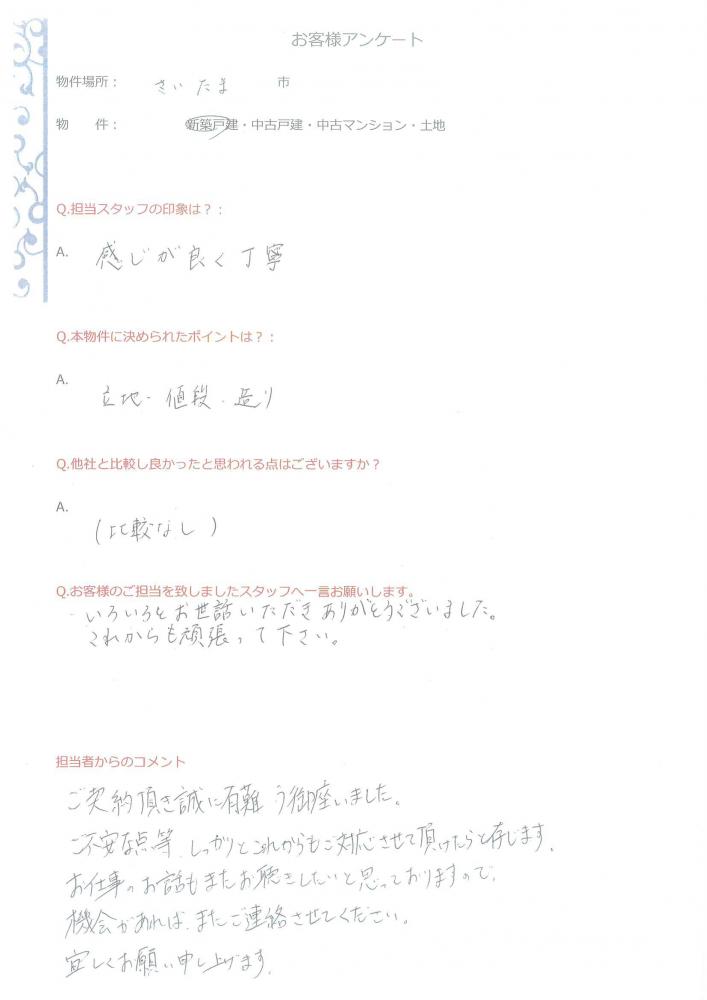 お客様アンケート
物件場所： さいたま 市
物 件： 新築戸建・中古戸建・中古マンション・土地
Q.担当スタッフの印象は？：
A. 感じが良く丁寧
Q.本物件に決められたポイントは？：
A. 立地・値段・造り
Q.他社と比較し良かったと思われる点はございますか？
A. (比較なし)
Q.お客様のご担当を致しましたスタッフへ一言お願いします。
いろいろとお世話いただきありがとうございました。
これからも頑張って下さい。
担当者からのコメント
ご契約頂き誠に有難う御座いました。
ご不安な点等、しっかりとこれからもご対応させて頂けたらと存じます。
お仕事のお話もまたお聴きしたいと思っておりますので、
機会があれば、またご連絡させてください。
宜しくお願い申し上げます。